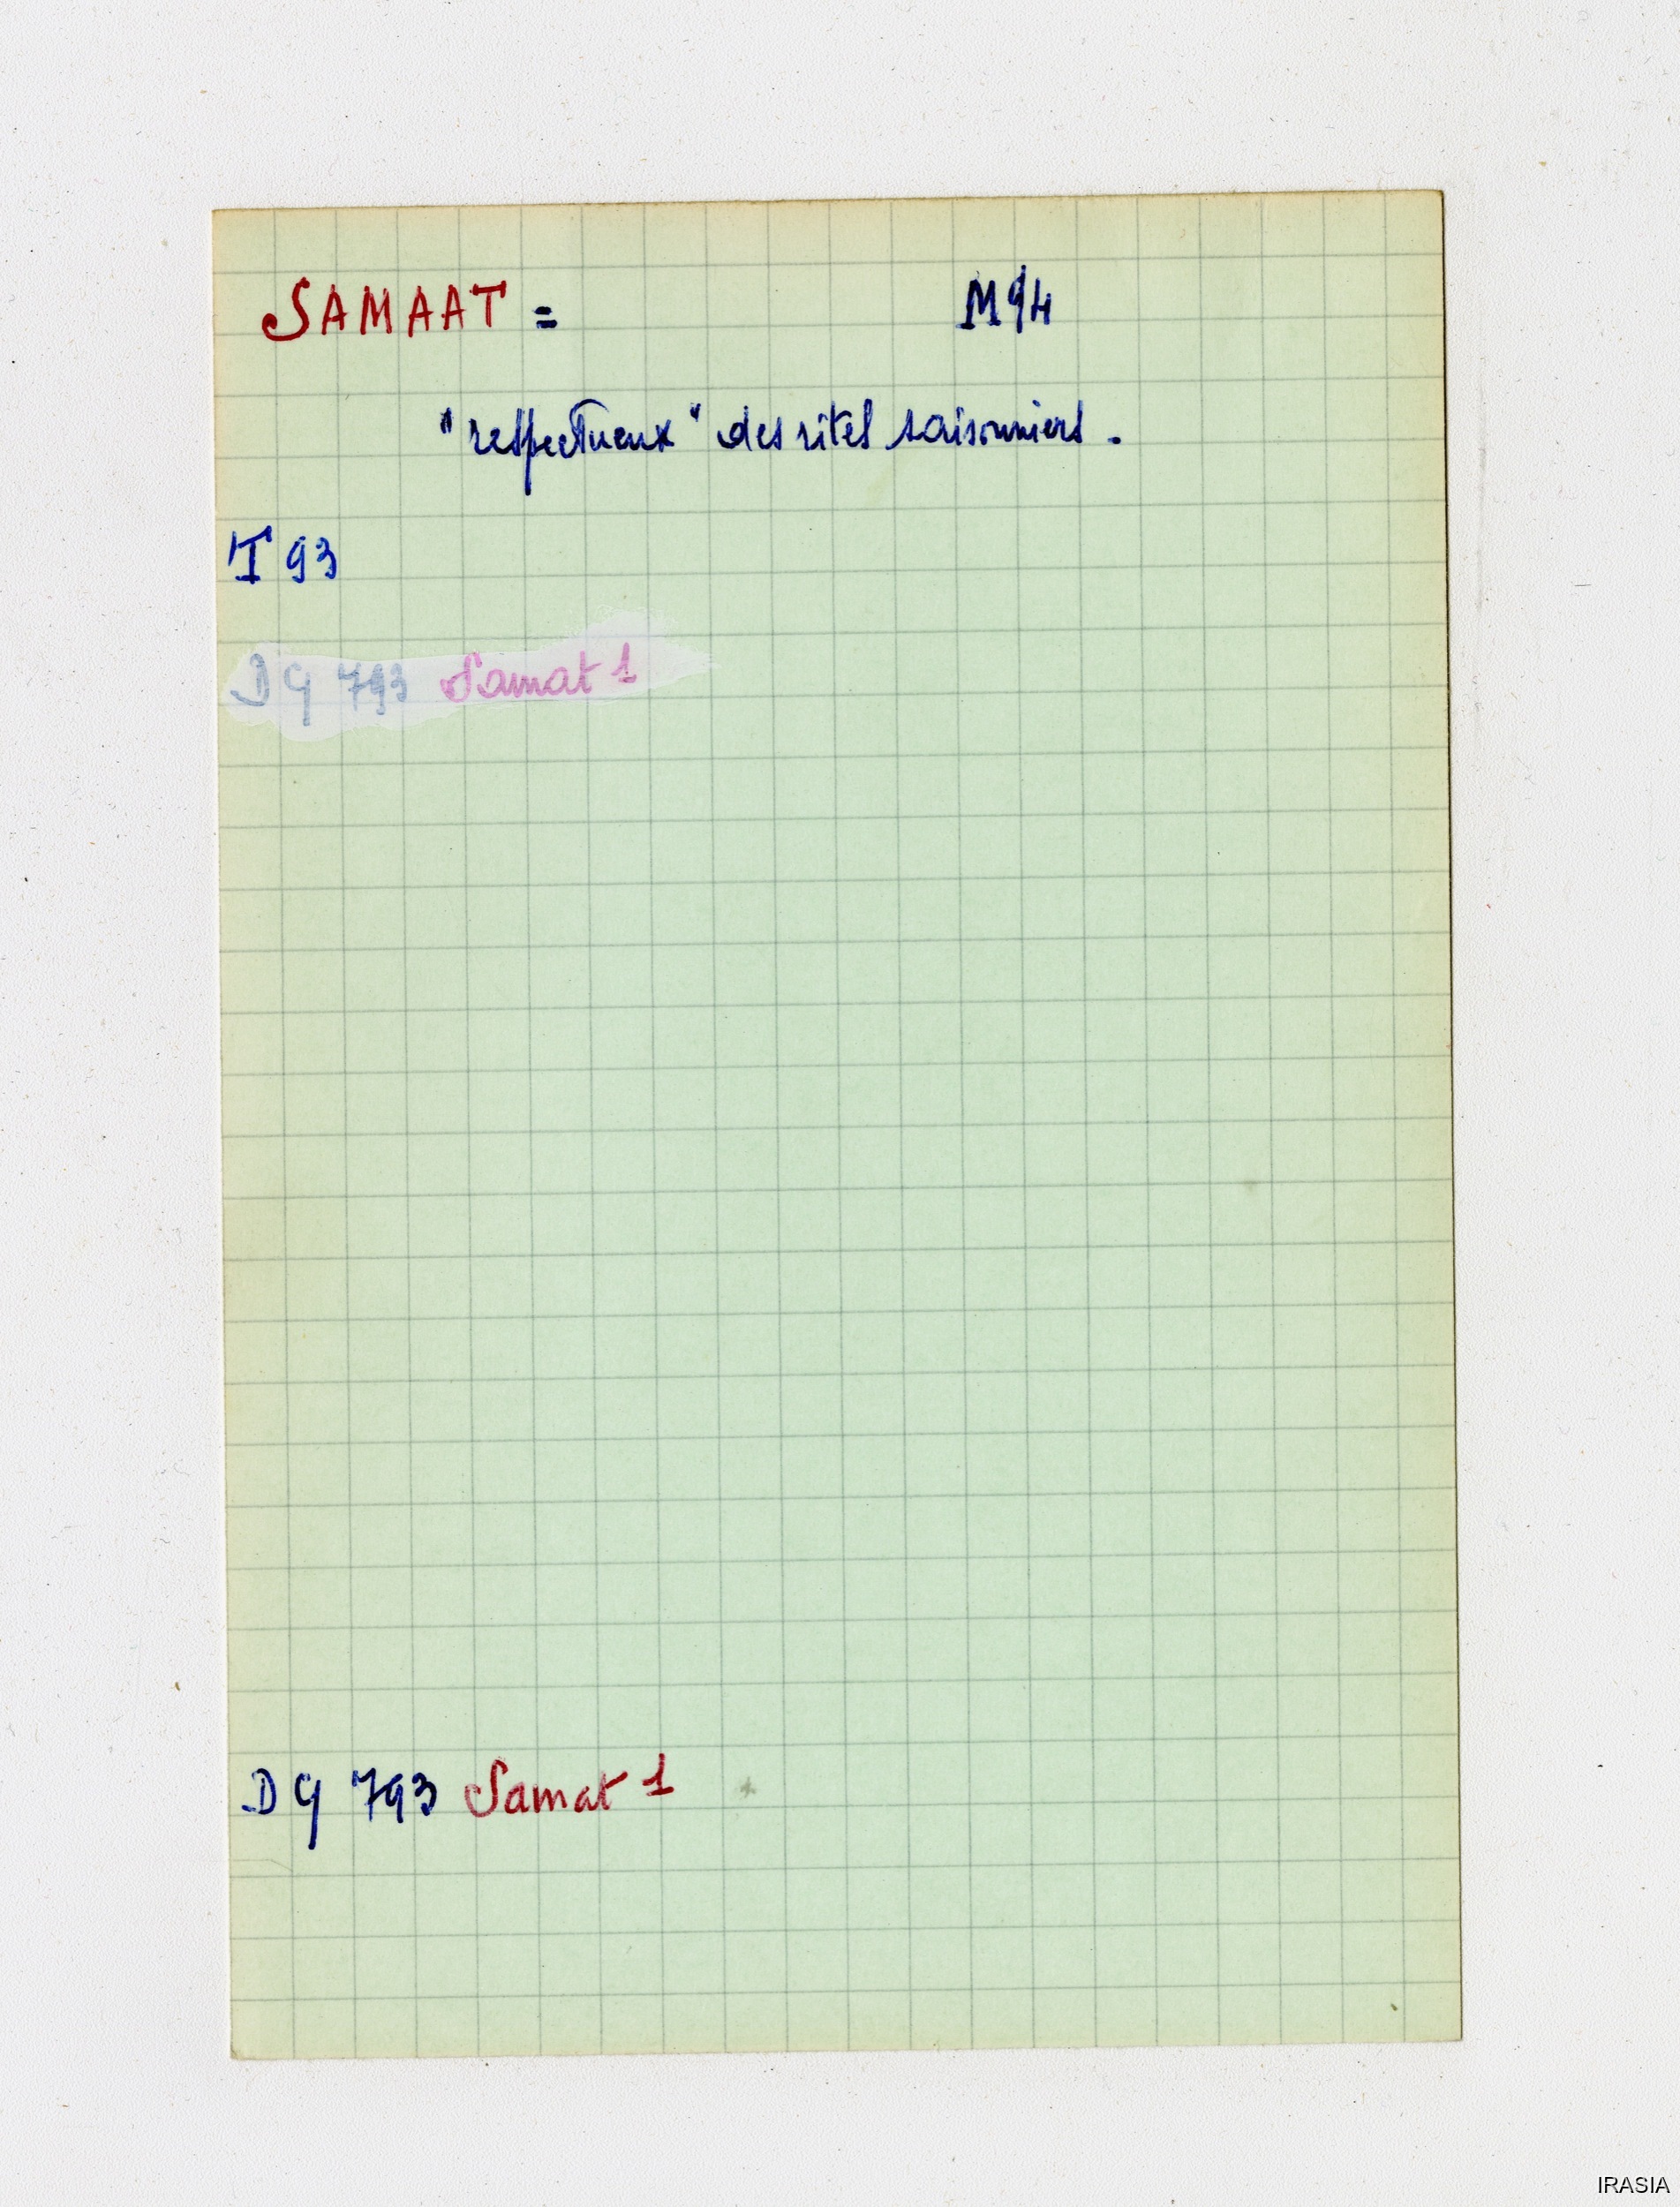 SAMAAT = M94
"respectueux" des rites saisonniers.
T 93
DG 793 Samat 1
DG 793 Samat 1
IRASIA